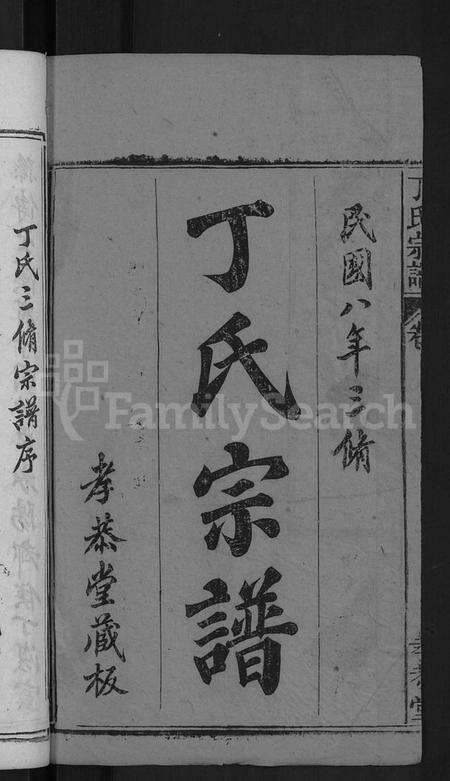 丁氏宗譜
民國八年三脩
丁氏宗譜
孝恭堂藏板
丁氏三脩宗譜序
FamilySearch